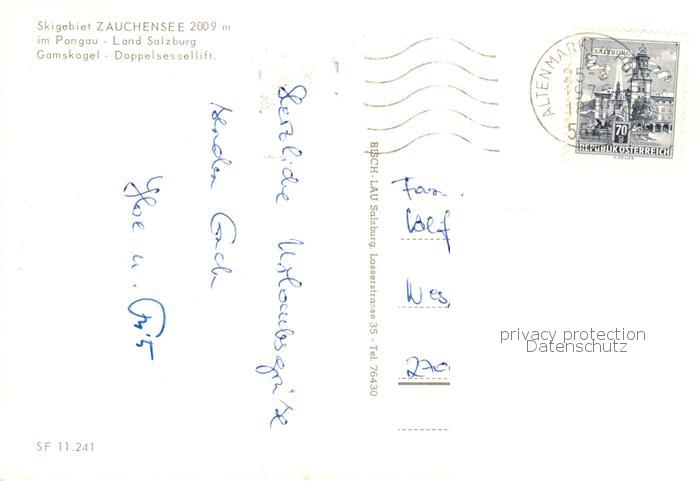 Skigebiet ZAUCHENSEE 2009 m
im Pongau - Land Salzburg
Gamskogel - Doppelsessellift.
Herzliche Urlaubsgrüße
senden Euch
Ilse u.
RISCH-LAU Salzburg, Lasserstrasse 35 - Tel. 76430
ALTENMARK
SALZBURG
70
REPUBLIK ÖSTERREICH
Fam.
Wolf
Wes
270
privacy protection
Datenschutz
SF 11.241